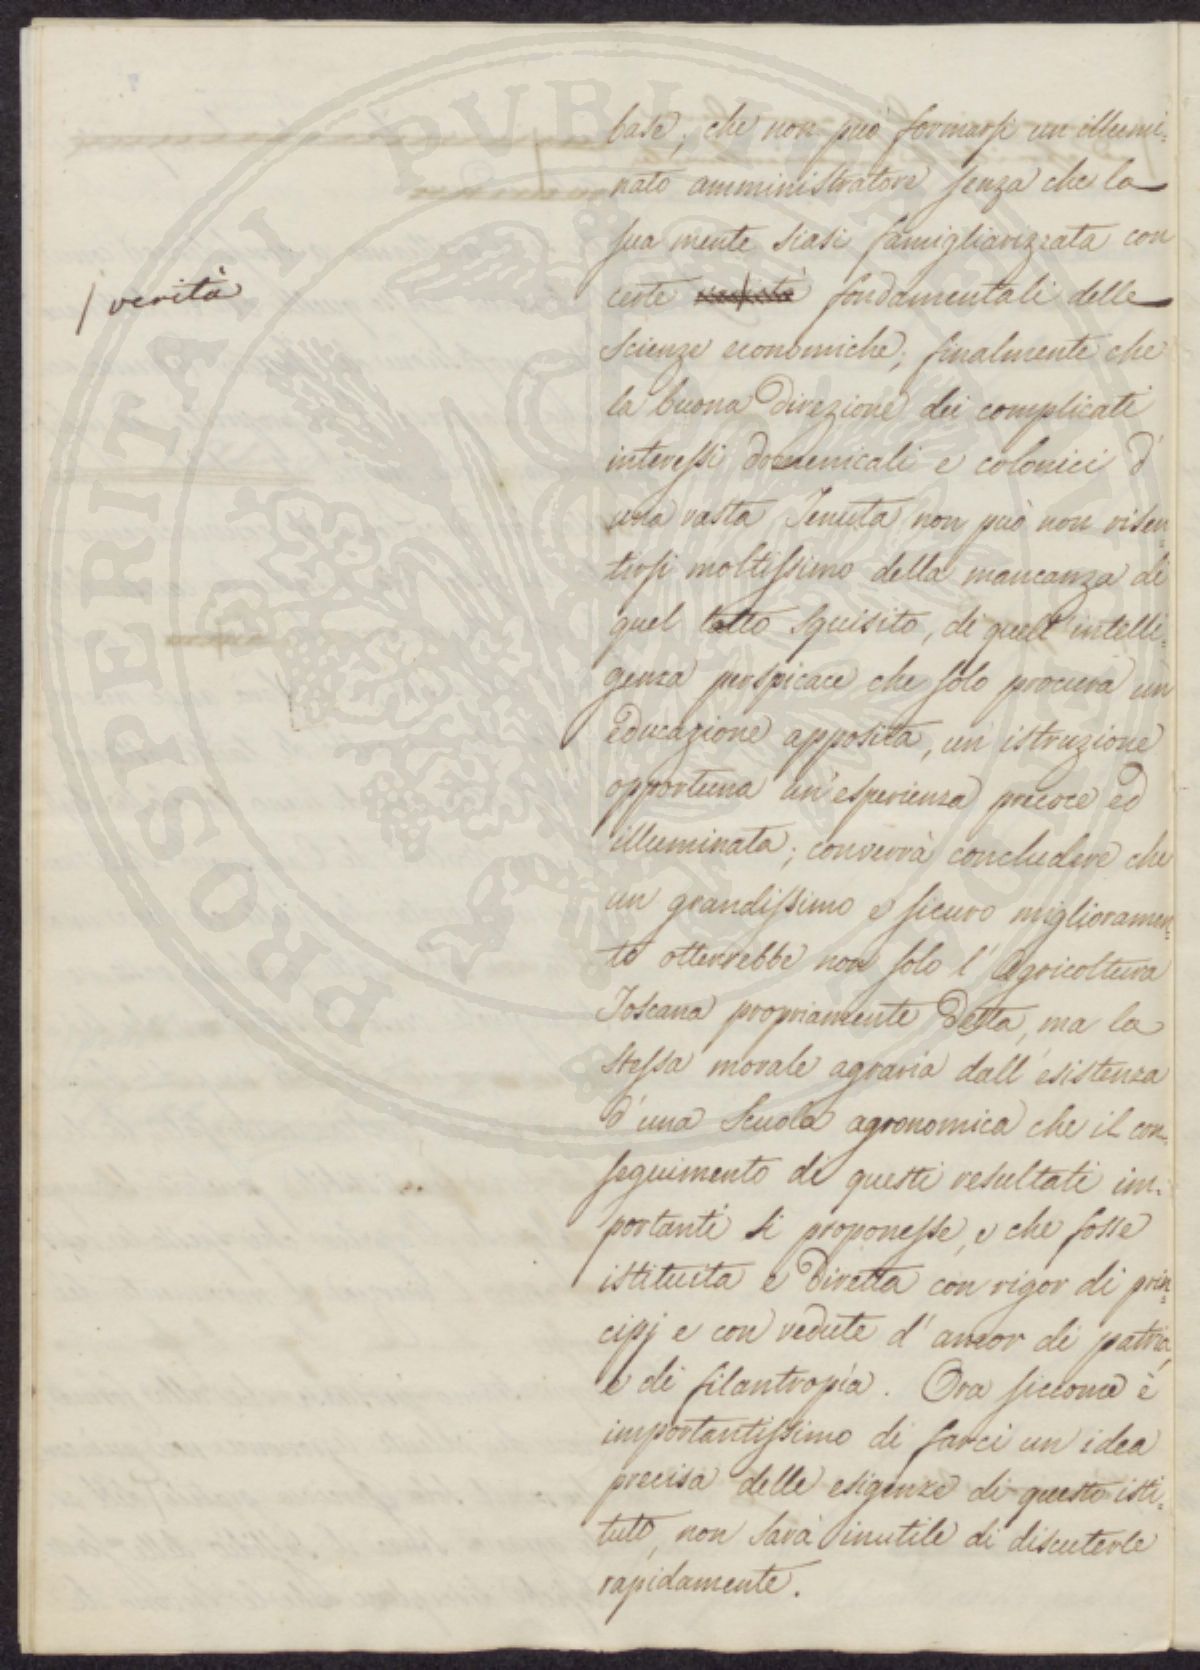 base; che non può formarsi un illumi-
nato amministratore senza che la
sua mente siasi famigliarizzata con
/ verità
certe fondamentali delle
Scienze economiche; finalmente che
la buona direzione dei complicati
interessi domenicali e colonici d'
una vasta Tenuta non può non risen=
tirsi moltissimo della mancanza di
quel tatto squisito, di quell'intelli=
genza perspicace che solo procura un
educazione apposita, un istruzione
opportuna un'esperienza precoce ed
illuminata; converrà concludere che
un grandissimo e sicuro miglioramen=
to otterrebbe non solo l'Agricoltura
Toscana propriamente detta, ma la
stessa morale agraria dall'esistenza
d'una Scuola agronomica che il con-
seguimento di questi resultati im-
portanti si proponesse, e che fosse
istituita e diretta con rigor di prin=
cipj e con vedute d'amor di patria,
e di filantropìa. Ora siccome è
importantissimo di farci un idea
precisa delle esigenze di questo isti=
tuto, non sarà inutile di discuterle
rapidamente.
PROSPERITATI PUBLICAE